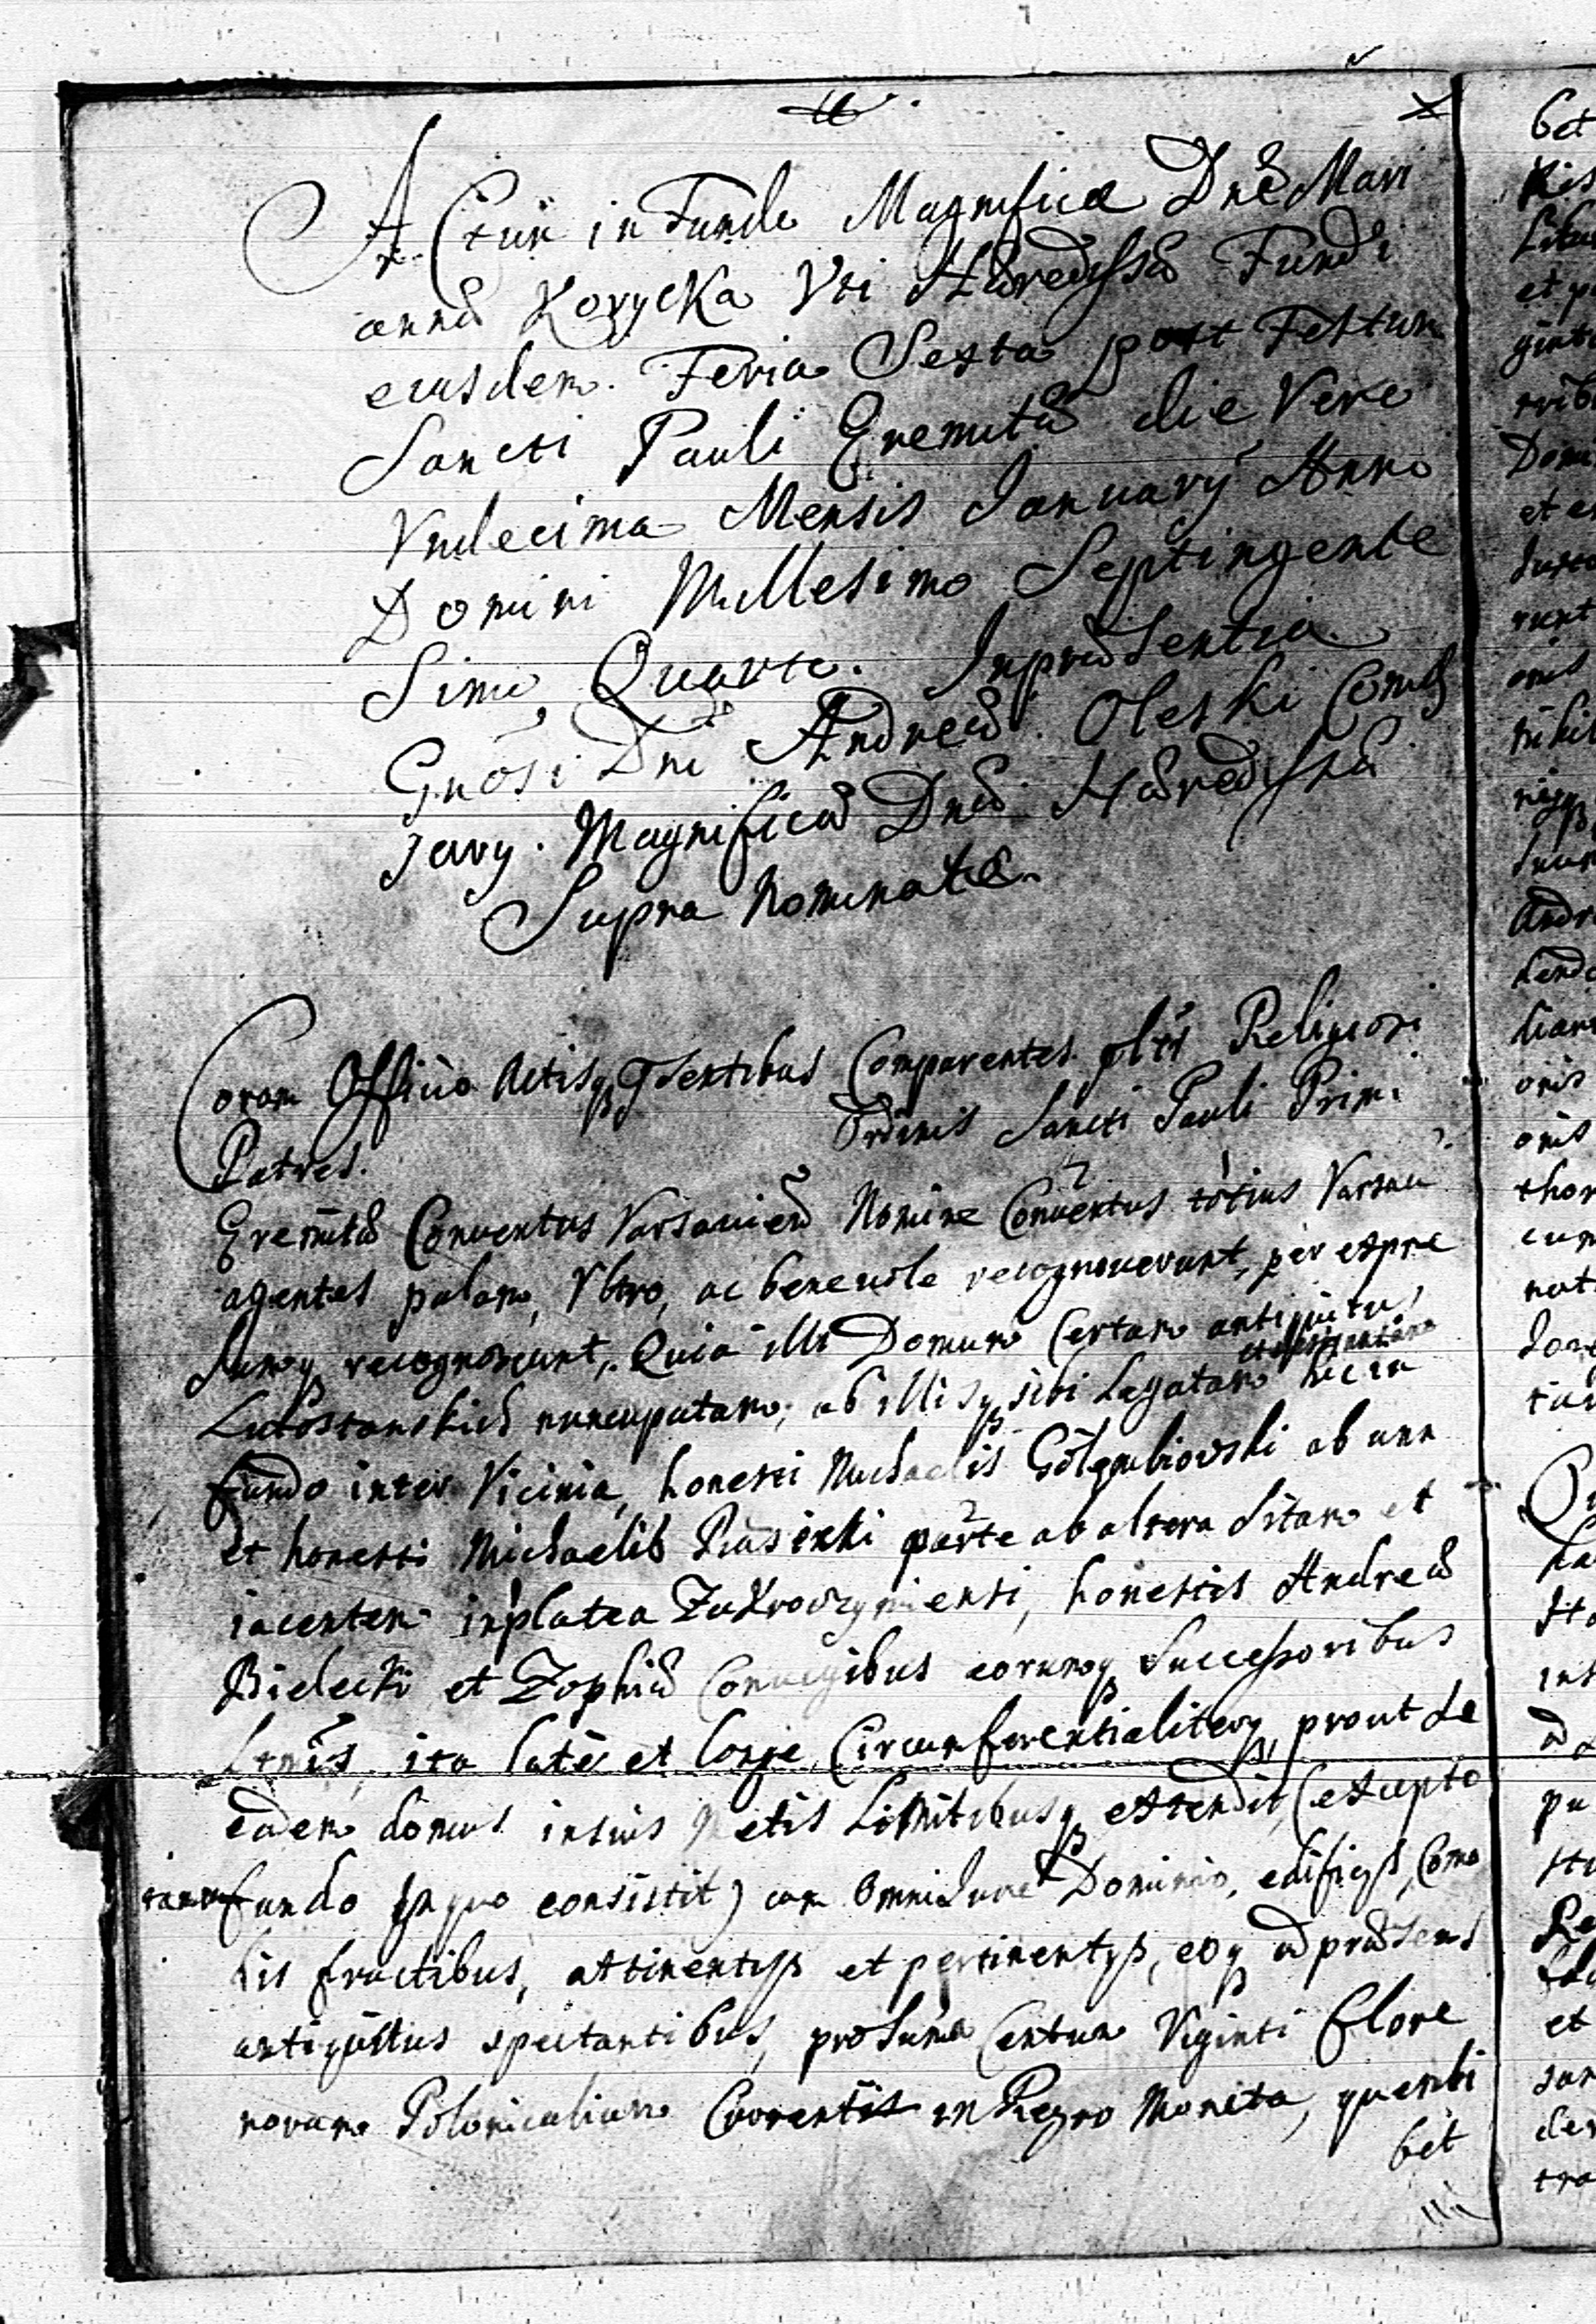 Actum in Fundo Magnificæ Dnæ Mari
annæ Korycka Uti Hæredissæ Fundi
eiusdem. Feria Sexta post Festum
Sancti Pauli Eremitæ die Vere
Undecima Mensis January Anno
Domini Millesimo Septingente
Simo Quarto. In præsentia
Gnosi Dni Andreæ Oleski Commis
sary. Magnificæ Dnæ Hæredissæ
Supra Nominatæ.
Coram Officio Actisq præsentibus Comparentes Religiosi
Patres. Ordinis Sancti Pauli Primi
Eremitæ Conventus Varsavien Nomine Conventus totius Varsavi
agentes palam, Ultro, ac benevole recognoverunt, per expre
sumq recognoscunt, Quia illi Domum Certam antiquitu
Lutostanskich nuncupatam, ab illisq sibi Legatam hic in
fundo inter Vicinia, honesti Michaelis Gołembiowski ab una
et honesti Michaelis parte ab altera Sitam et
iacentem in platea Zakroczymiensi, honestis Andreæ
Bielecki et Zophiæ Coniugibus eorumq Successoribus
Ltmis, ita late et longe, Circumferentialiterq, prout Se
eadem domus in suis Metis Limitibusq extendit, (excepto
tamen fundo in quo consistit) cum omni Jure Dominio, edificys, Como
dis fructibus, attinentys et pertinentys, eoq ad præsens
antiquitus spectantibus, pro Suma Centum Viginti flore
norum Polonicalium Currentis in Regno Moneta, quemli
bet